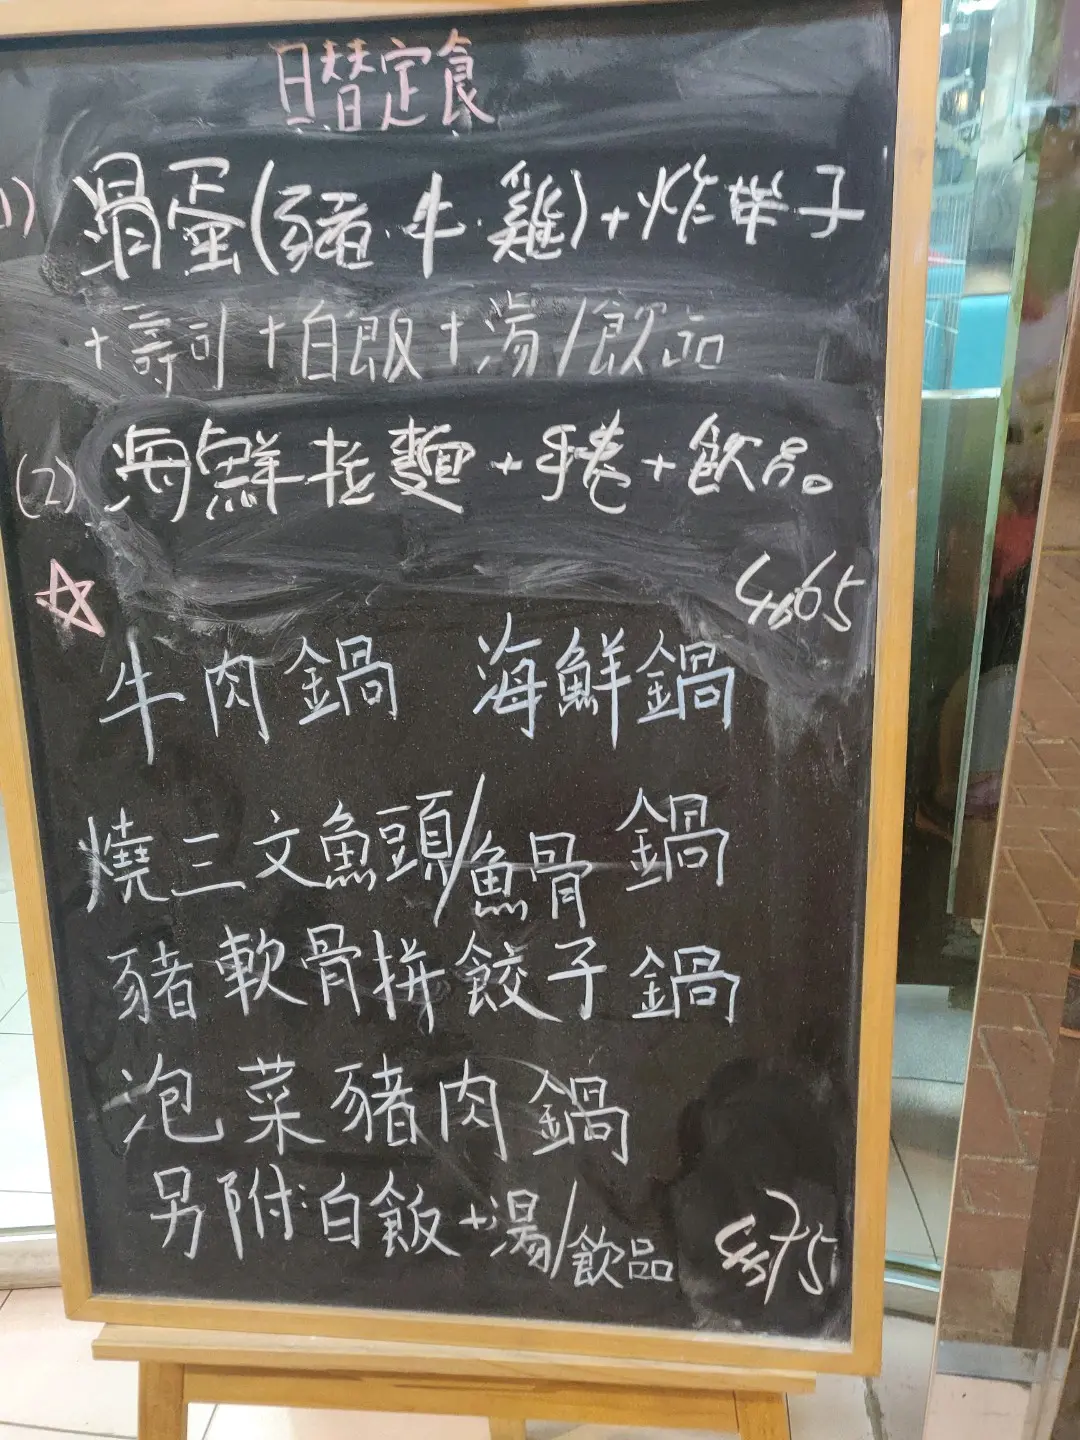 日替定食
1) 滑蛋(豬.牛.雞)+炸帶子
+壽司+白飯+湯/飲品
(2) 海鮮拉麵+手卷+飲品。
65
☆
牛肉鍋 海鮮鍋
燒三文魚頭/魚骨 鍋
豬軟骨拼餃子鍋
泡菜豬肉鍋
另附:白飯+湯/飲品
75